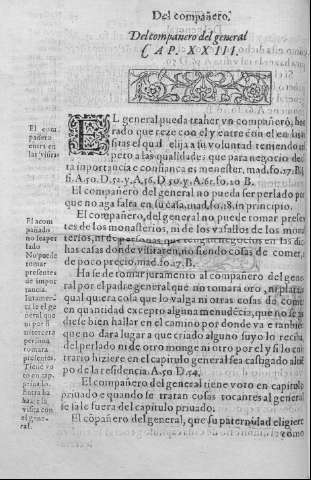 Del compañero.
Del compañero del general
CAP. XXIII.
EL general pueda traher vn compañero, hō
rado que reze con el y entre con el en las vi
sitas el qual elija a su voluntad teniendo res
pero a las qualidades que para negocio de tā
ta importancia e confiança es menester, mad. fo. 17. B.
fi. A. 50. D. 52. y A. 56. D. 59. y A. 61. fo. 20 B.
El compañero del general no pueda ser perlado por
que no aga falta en su casa, mad. fo. 18. in principio.
El compañero, del general no puede tomar presen
tes de los monasterios, ni de los vasallos de los mona
sterios, ni de personas que tengan negocios en las di
has casas donde visitaren, no siendo cosas de comer, e
de poco precio, mad. fo. 17. B.
Ha se de tomar juramento al compañero del gene
ral por el padre general que no tomará oro, ni plata
qual quiera cosa que lo valga ni otras cosas de comer
en quantidad excepto alguna menudēcia, que no se pu
diese bien hallar en el camino por donde va e tanbien
que no dara lugar a que criado alguno suyo lo reciba
del perlado ni de otro monge ni otro por el y si lo con
trario hiziere en el capitulo general sea castigado al tiē
po de la residencia. A. 50 D. 54.
El compañero del general tiene voto en capitulo
priuado e quando se tratan cosas tocantes al general
se salse fuera del capitulo priuado.
El cōpañero del general, que su paternidad eligiere
como
El com
pañero
entra en
las visitas
El acom
pañado
no sea per
lado
No puede
tomar
presentes
de impor
tancia.
Iuramen
to
el gene
ral que
ni por si
ni tercera
persona
tomara
presentes.
Tiene vo
to en cap.
priuado.
Entra
visita con
el gene-
ral.